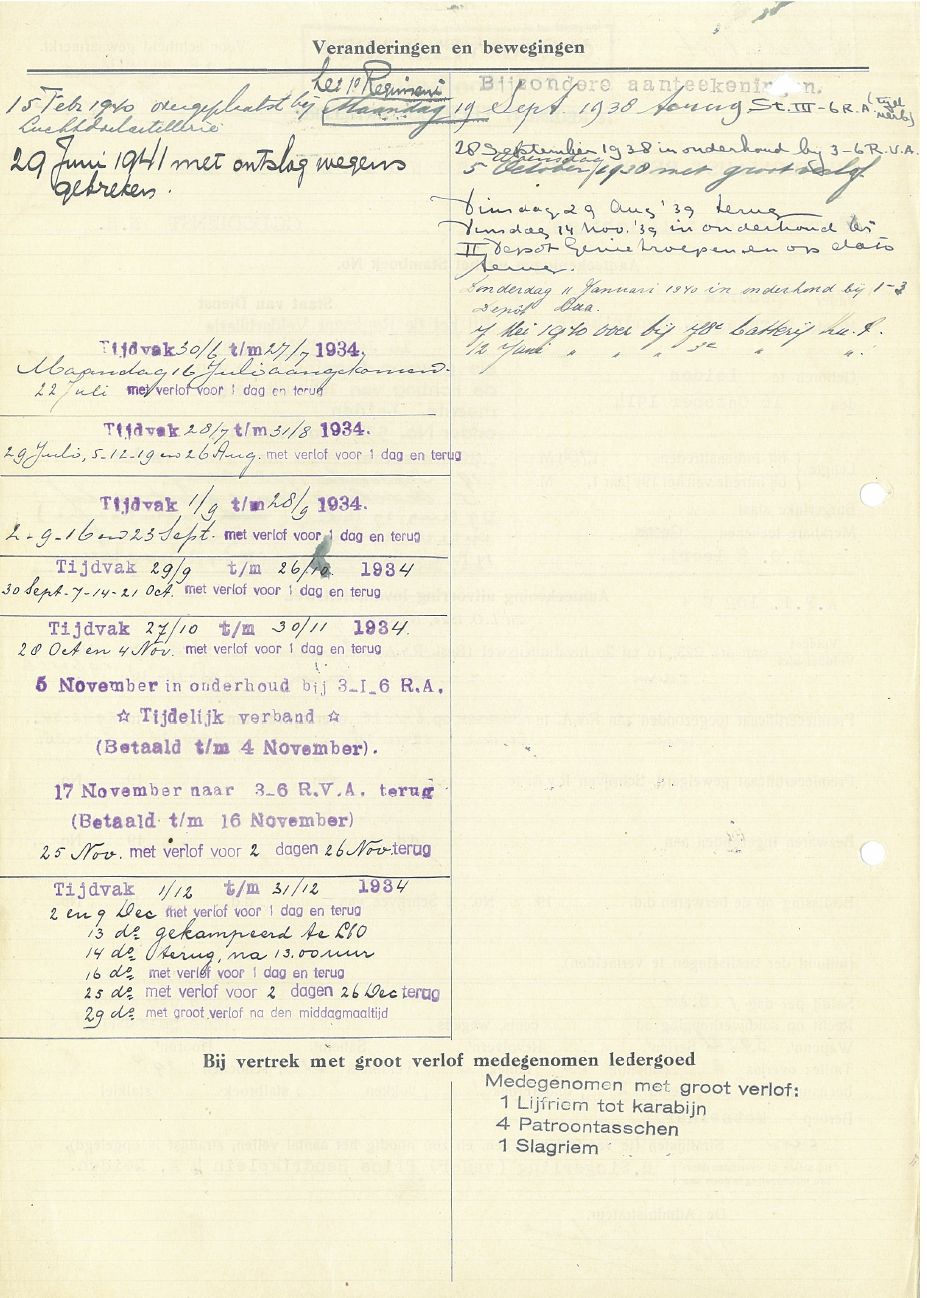 Veranderingen en bewegingen
het 1e Regiment
15 Febr 1940 overgeplaatst bij Maandag
Luchtdoelartillerie
29 Juni 1941 met ontslag wegens
gebreken.
Tijdvak 30/6 t/m 27/7 1934.
Maandag 16 Juli aangekomen.
22 Juli met verlof voor 1 dag en terug
Tijdvak 28/7 t/m 31/8 1934.
29 Juli, 5-12-19 en 26 Aug. met verlof voor 1 dag en terug
Tijdvak 1/9 t/m 28/9 1934.
2-9-16 en 23 Sept. met verlof voor 1 dag en terug
Tijdvak 29/9 t/m 26/10. 1934
30 Sept-7-14-21 Oct. met verlof voor 1 dag en terug
Tijdvak 27/10 t/m 30/11 1934.
28 Oct en 4 Nov. met verlof voor 1 dag en terug
5 November in onderhoud bij 3-I-6 R.A.
☆ Tijdelijk verband ☆
(Betaald t/m 4 November).
17 November naar 3-6 R.V.A. terug
(Betaald t/m 16 November)
25 Nov. met verlof voor 2 dagen 26 Nov. terug
Tijdvak 1/12 t/m 31/12 1934
2 en 9 Dec met verlof voor 1 dag en terug
13 do gekampeerd te
14 do terug, na 13.00 uur
16 do met verlof voor 1 dag en terug
25 do met verlof voor 2 dagen 26 Dec terug
29 do met groot verlof na den middagmaaltijd
Bijzondere aanteekeningen.
19 Sept 1938 terug St. III-6 R.A.
28 September 1938 in onderhoud bij 3-6 R.V.A.
Woensdag
5 October 1938 met groot verlof
Dinsdag 29 Aug '39 terug
Dinsdag 14 Nov. '39 in onderhoud bij
II Depot Genietroepen en op dato
terug.
Donderdag 11 Januari 1940 in onderhoud bij 1-3
Depot Lua.
7 Mei 1940 over bij 78e batterij Lu.A.
12 Juni " " " 3e " "
Bij vertrek met groot verlof medegenomen ledergoed
Medegenomen met groot verlof:
1 Lijfriem tot karabijn
4 Patroontasschen
1 Slagriem